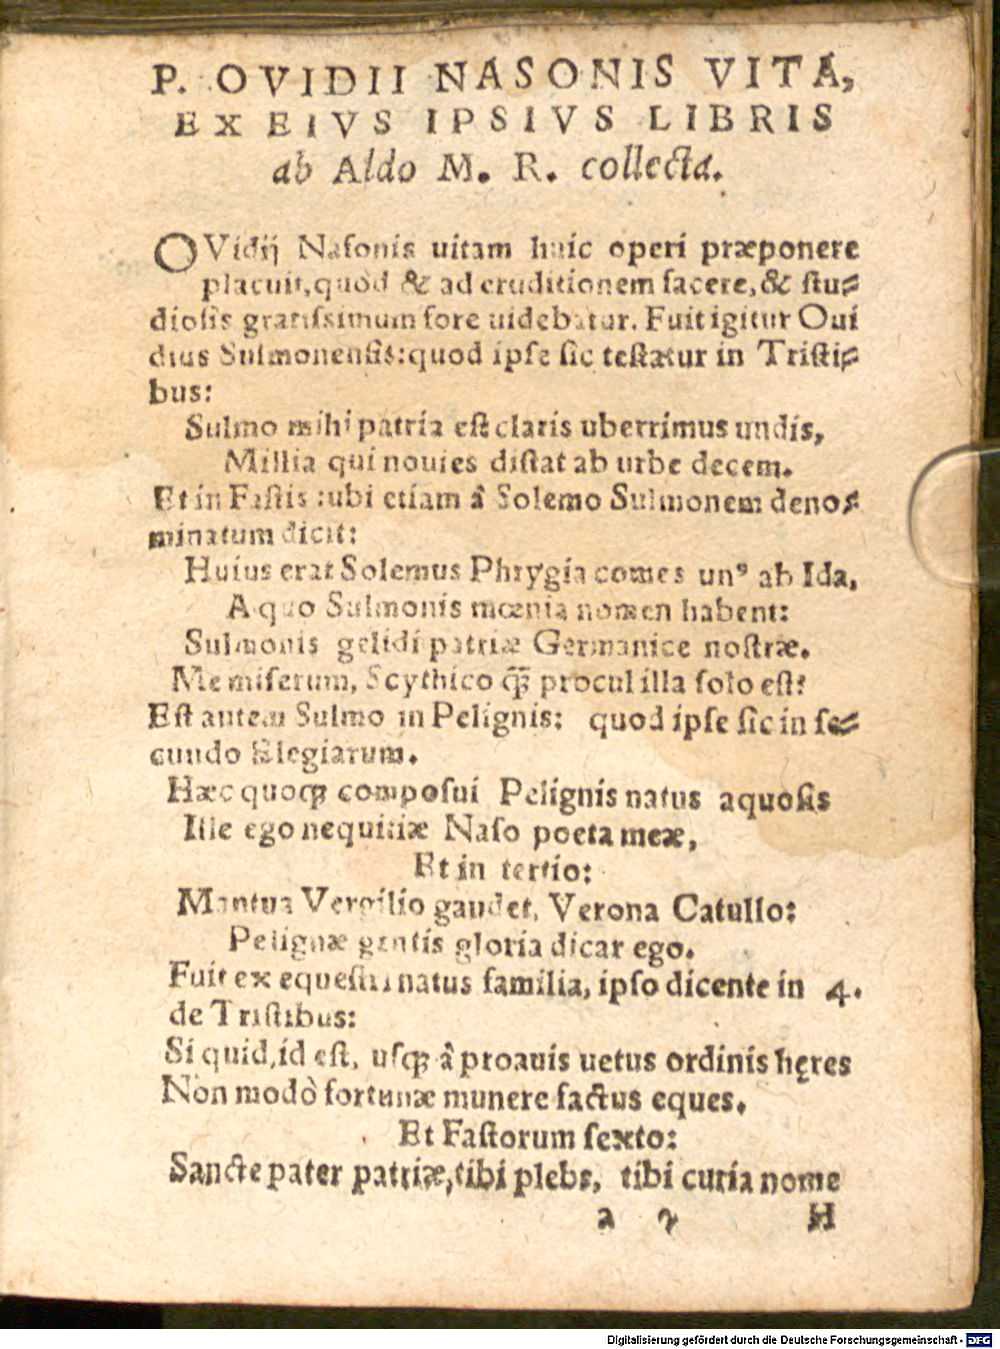 P. OVIDII NASONIS VITA,
EX EIVS IPSIVS LIBRIS
ab Aldo M. R. collecta.
OVidij Nasonis uitam huic operi præponere
placuit, quòd & ad eruditionem facere, & stu⸗
diosis gratissimum fore uidebatur. Fuit igitur Oui
dius Sulmonensis: quod ipse sic testatur in Tristi⸗
bus:
Sulmo mihi patria est claris uberrimus undis,
Millia qui nouies distat ab urbe decem.
Et in Fastis: ubi etiam â Solemo Sulmonem deno⸗
minatum dicit:
Huius erat Solemus Phrygia comes unꝰ ab Ida,
A quo Sulmonis mœnia nomen habent:
Sulmonis gelidi patriæ Germanice nostræ.
Me miserum, Scythico q̃ꝫ procul illa solo est?
Est autem Sulmo in Pelignis: quod ipse sic in se⸗
cundo Elegiarum.
Hæc quoqꝫ composui Pelignis natus aquosis
Ille ego nequitiæ Naso poeta meæ,
Et in tertio:
Mantua Vergilio gaudet, Verona Catullo:
Pelignæ gentis gloria dicar ego.
Fuit ex equestri natus familia, ipso dicente in 4.
de Tristibus:
Si quid, id est, usqꝫ â proauis uetus ordinis hęres
Non modò fortunæ munere factus eques.
Et Fastorum sexto:
Sancte pater patriæ, tibi plebs, tibi curia nome
a 2 H
Digitalisierung gefördert durch die Deutsche Forschungsgemeinschaft - DFG